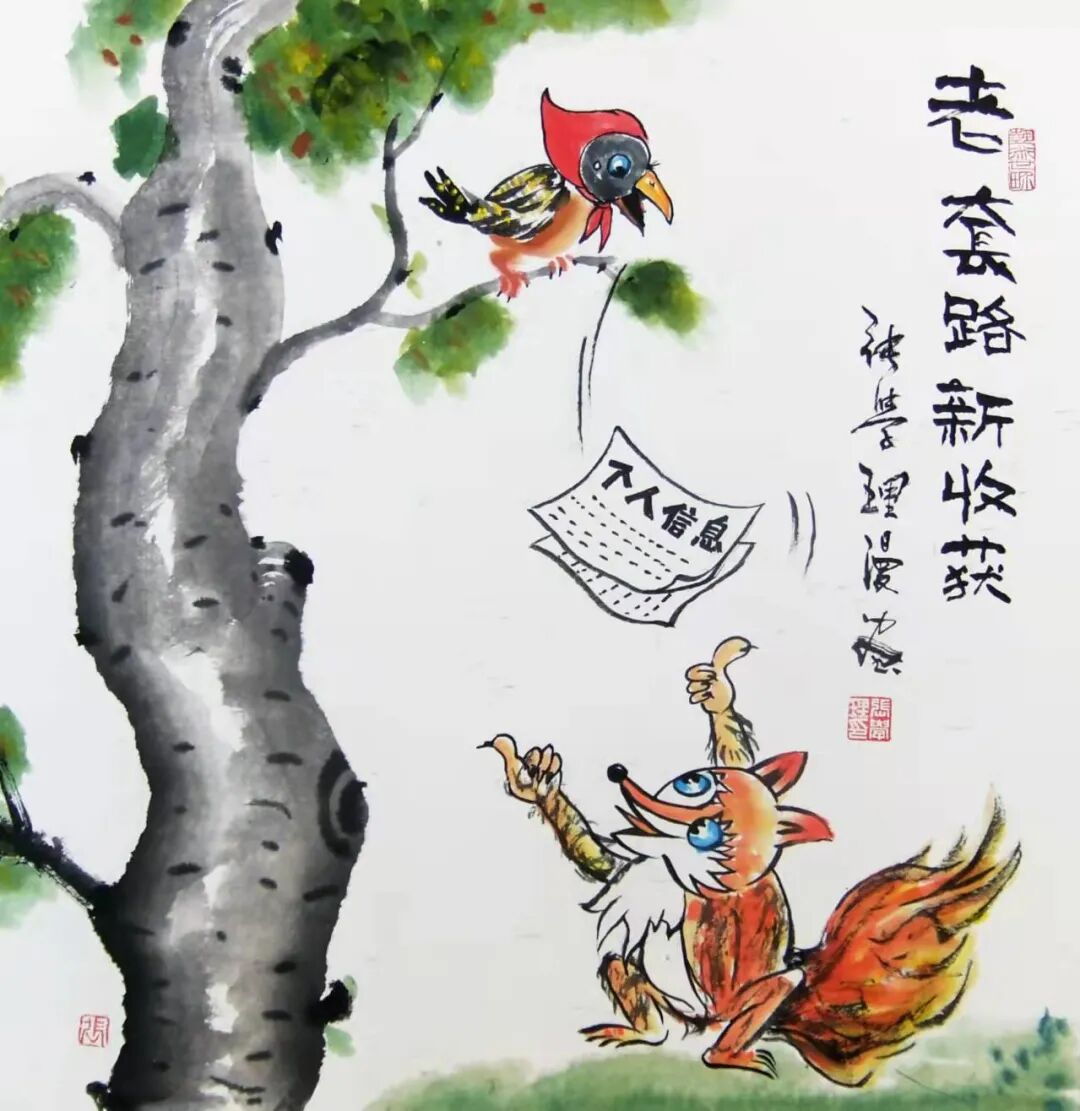 老套路新收获
张学理漫画
个人信息